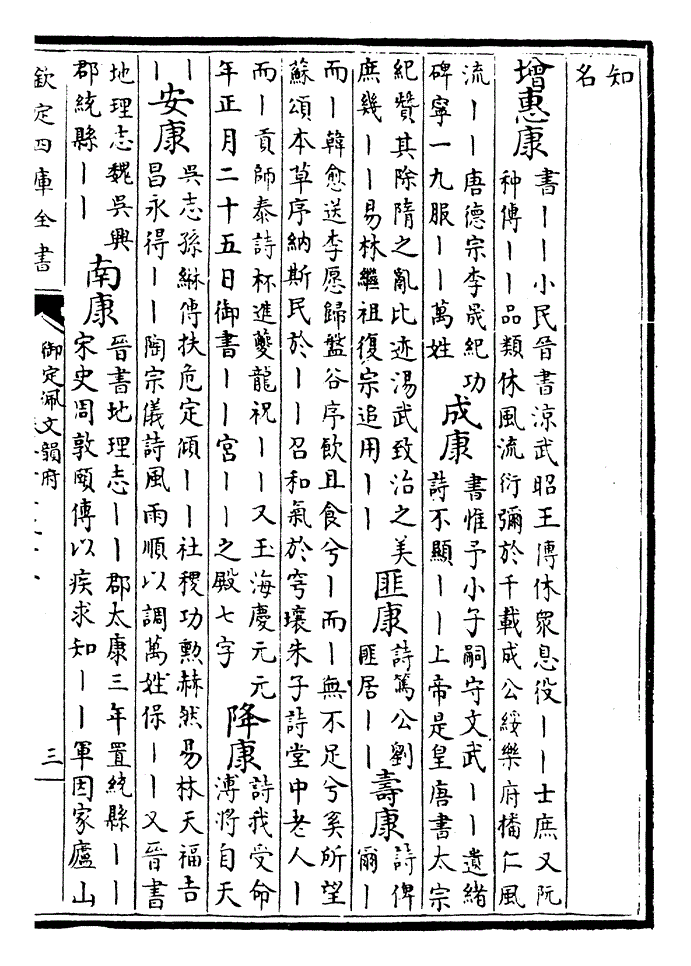 知
名
增惠康
書丨丨小民晉書涼武昭王傳休衆息役丨丨士庶又阮
种傳丨丨品類休風流衍彌於千載成公綏樂府播仁風
流丨丨唐德宗李晟紀功
碑寧一九服丨丨萬姓
成康
書惟予小子嗣守文武丨丨遺緒
詩不顯丨丨上帝是皇唐書太宗
紀贊其除隋之亂比迹湯武致治之美
庶幾丨丨易林繼祖復宗追用丨丨
匪康
詩篤公劉
匪居丨丨
壽康
詩俾
爾丨
而丨韓愈送李愿歸盤谷序飲且食兮丨而丨無不足兮奚所望
蘇頌本草序納斯民於丨丨召和氣於穹壤朱子詩堂中老人丨
而丨貢師泰詩杯進夔龍祝丨丨又玉海慶元元
年正月二十五日御書丨丨宮丨丨之殿七字
降康
詩我受命
溥將自天
丨
丨
安康
吳志孫綝傳扶危定傾丨丨社稷功勲赫然易林天福吉
昌永得丨丨陶宗儀詩風雨順以調萬姓保丨丨又晉書
地理志魏吳興
郡統縣丨丨
南康
晉書地理志丨丨郡太康三年置統縣丨丨
宋史周敦頤傳以疾求知丨丨軍因家廬山
欽定四庫全書
御定佩文韻府
三